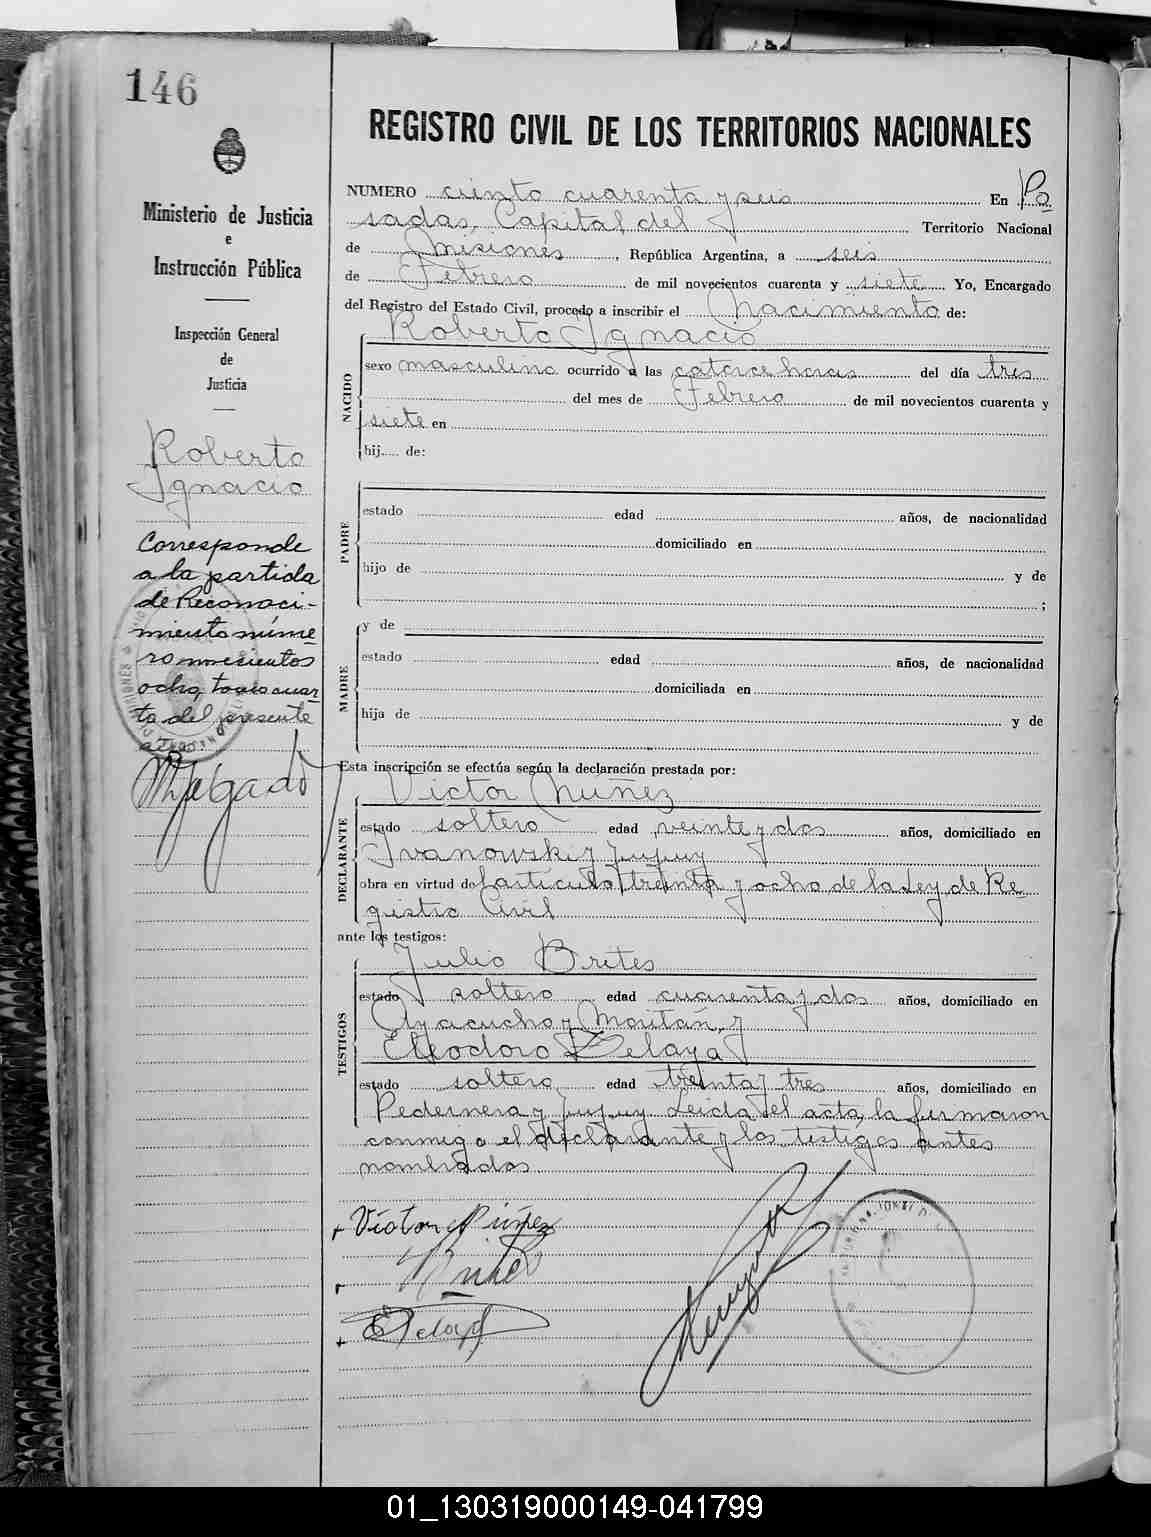 146
Ministerio de Justicia
e
Instrucción Pública
Inspección General
de
Justicia
Roberto
Ignacio
Corresponde
a la partida
de Reconoci-
miento núme
ro novecientos
ocho, tomo cuar
to del presente
año
REGISTRO CIVIL DE LOS TERRITORIOS NACIONALES
NUMERO ciento cuarenta y seis En Po
sadas, Capital del Territorio Nacional
de Misiones, República Argentina, a seis
de Febrero de mil novecientos cuarenta y siete Yo, Encargado
del Registro del Estado Civil, procedo a inscribir el Nacimiento de:
Roberto Ignacio
NACIDO
sexo masculino ocurrido a las catorce horas del día tres
del mes de Febrero de mil novecientos cuarenta y
siete en
hij..... de:
PADRE
estado edad años, de nacionalidad
domiciliado en
hijo de y de
;
MADRE
y de
estado edad años, de nacionalidad
domiciliada en
hija de y de
Esta inscripción se efectúa según la declaración prestada por:
Victor Núñez
DECLARANTE
estado soltero edad veinte y dos años, domiciliado en
Ivanowski y Jujuy
obra en virtud del artículo treinta y ocho de la Ley de Re
gistro Civil
ante los testigos:
Julio Brites
TESTIGOS
estado soltero edad cuarenta y dos años, domiciliado en
Ayacucho y Moritán, y
Eleodoro Zelaya
estado soltero, edad treinta y tres años, domiciliado en
Pedernera y Jujuy. Leida el acta, la firmaron
conmigo el declarante y los testigos antes
nombrados
Victor Núñez
01_130319000149-041799